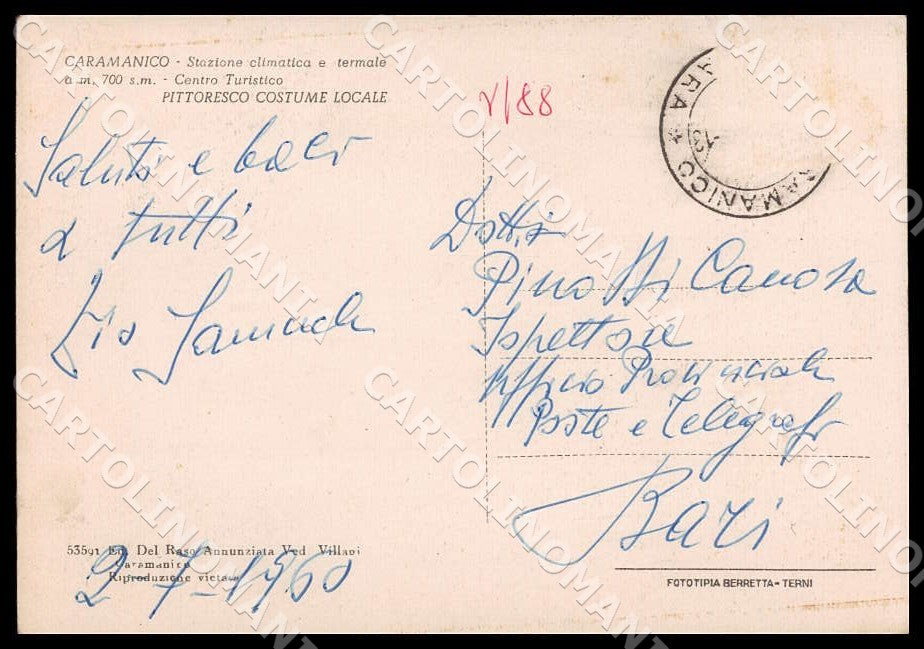 CARAMANICO - Stazione climatica e termale
a m. 700 s.m. - Centro Turistico
PITTORESCO COSTUME LOCALE
Saluti e baci
a tutti
Zio
V/88
ARA * CARAMANICO
13
Dott.
Pino Di Canosa
Ispettore
Ufficio Provinciale
Poste e Telegrafi
Bari
53591 Ed. Del Raso Annunziata Ved. Villani
Caramanico
Riproduzione vietata
2-7-1960
FOTOTIPIA BERRETTA - TERNI
CARTOLINOMANIA